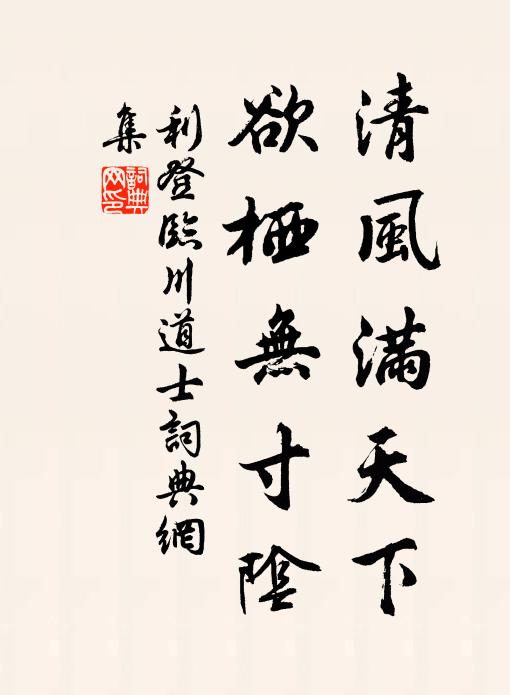 清風滿天下
欲栖無寸陰
利登臨川道士詞典網
集
詞典
网印